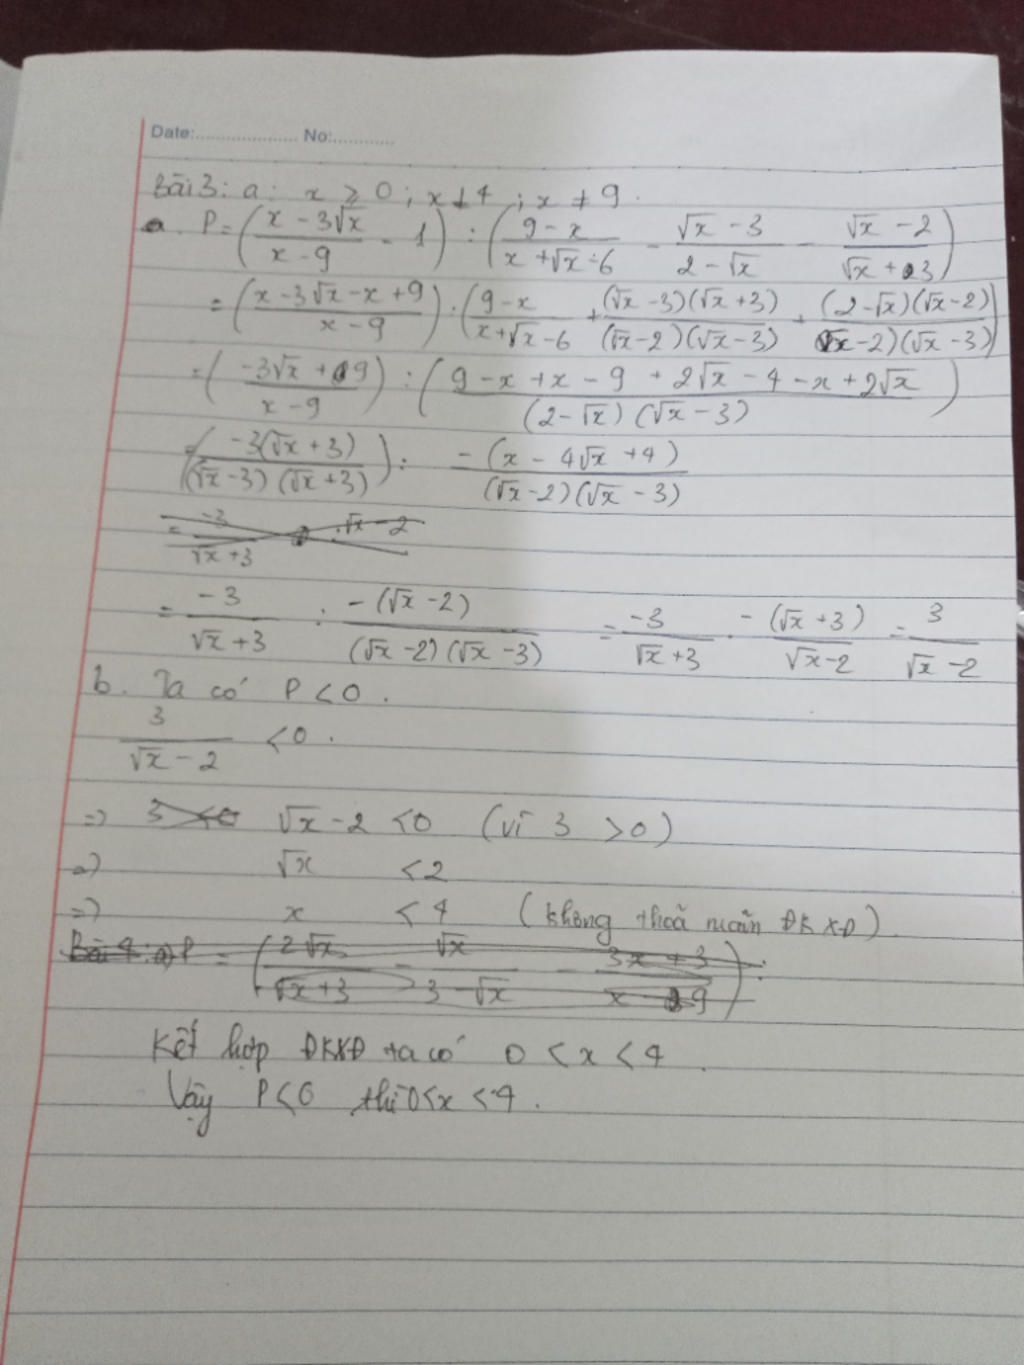 Date:................... No:............
Bài 3: a: x ≥ 0 ; x ≠ 4 ; x ≠ 9.
a. P = ((x - 3√x)/(x - 9) - 1) : ((9 - x)/(x + √x - 6) - (√x - 3)/(2 - √x) - (√x - 2)/(√x + 3))
= ((x - 3√x - x + 9)/(x - 9)) . ((9 - x)/(x + √x - 6) + ((√x - 3)(√x + 3))/((√x - 2)(√x - 3)) + ((2 - √x)(√x - 2))/((√x - 2)(√x - 3)))
= ((-3√x + 9)/(x - 9)) : ((9 - x + x - 9 + 2√x - 4 - x + 2√x)/((2 - √x)(√x - 3)))
= ((-3(√x + 3))/((√x - 3)(√x + 3))) : (-(x - 4√x + 4))/((√x - 2)(√x - 3))
= (-3)/(√x + 3) : (-(√x - 2))/((√x - 2)(√x - 3)) = (-3)/(√x + 3) . (-(√x + 3))/(√x - 2) = 3/(√x - 2)
b. Ta có P < 0.
3/(√x - 2) < 0.
=> 3 < 0 √x - 2 < 0 (vì 3 > 0)
=> √x < 2
=> x < 4 (không thoã mãn ĐKXĐ).
Bài 4: a) P = ((2√x)/(√x + 3) - (√x)/(3 - √x) - (3x + 3)/(x - 9)) :
Kết hợp ĐKXĐ ta có 0 < x < 4.
Vậy P < 0 thì 0 < x < 4.